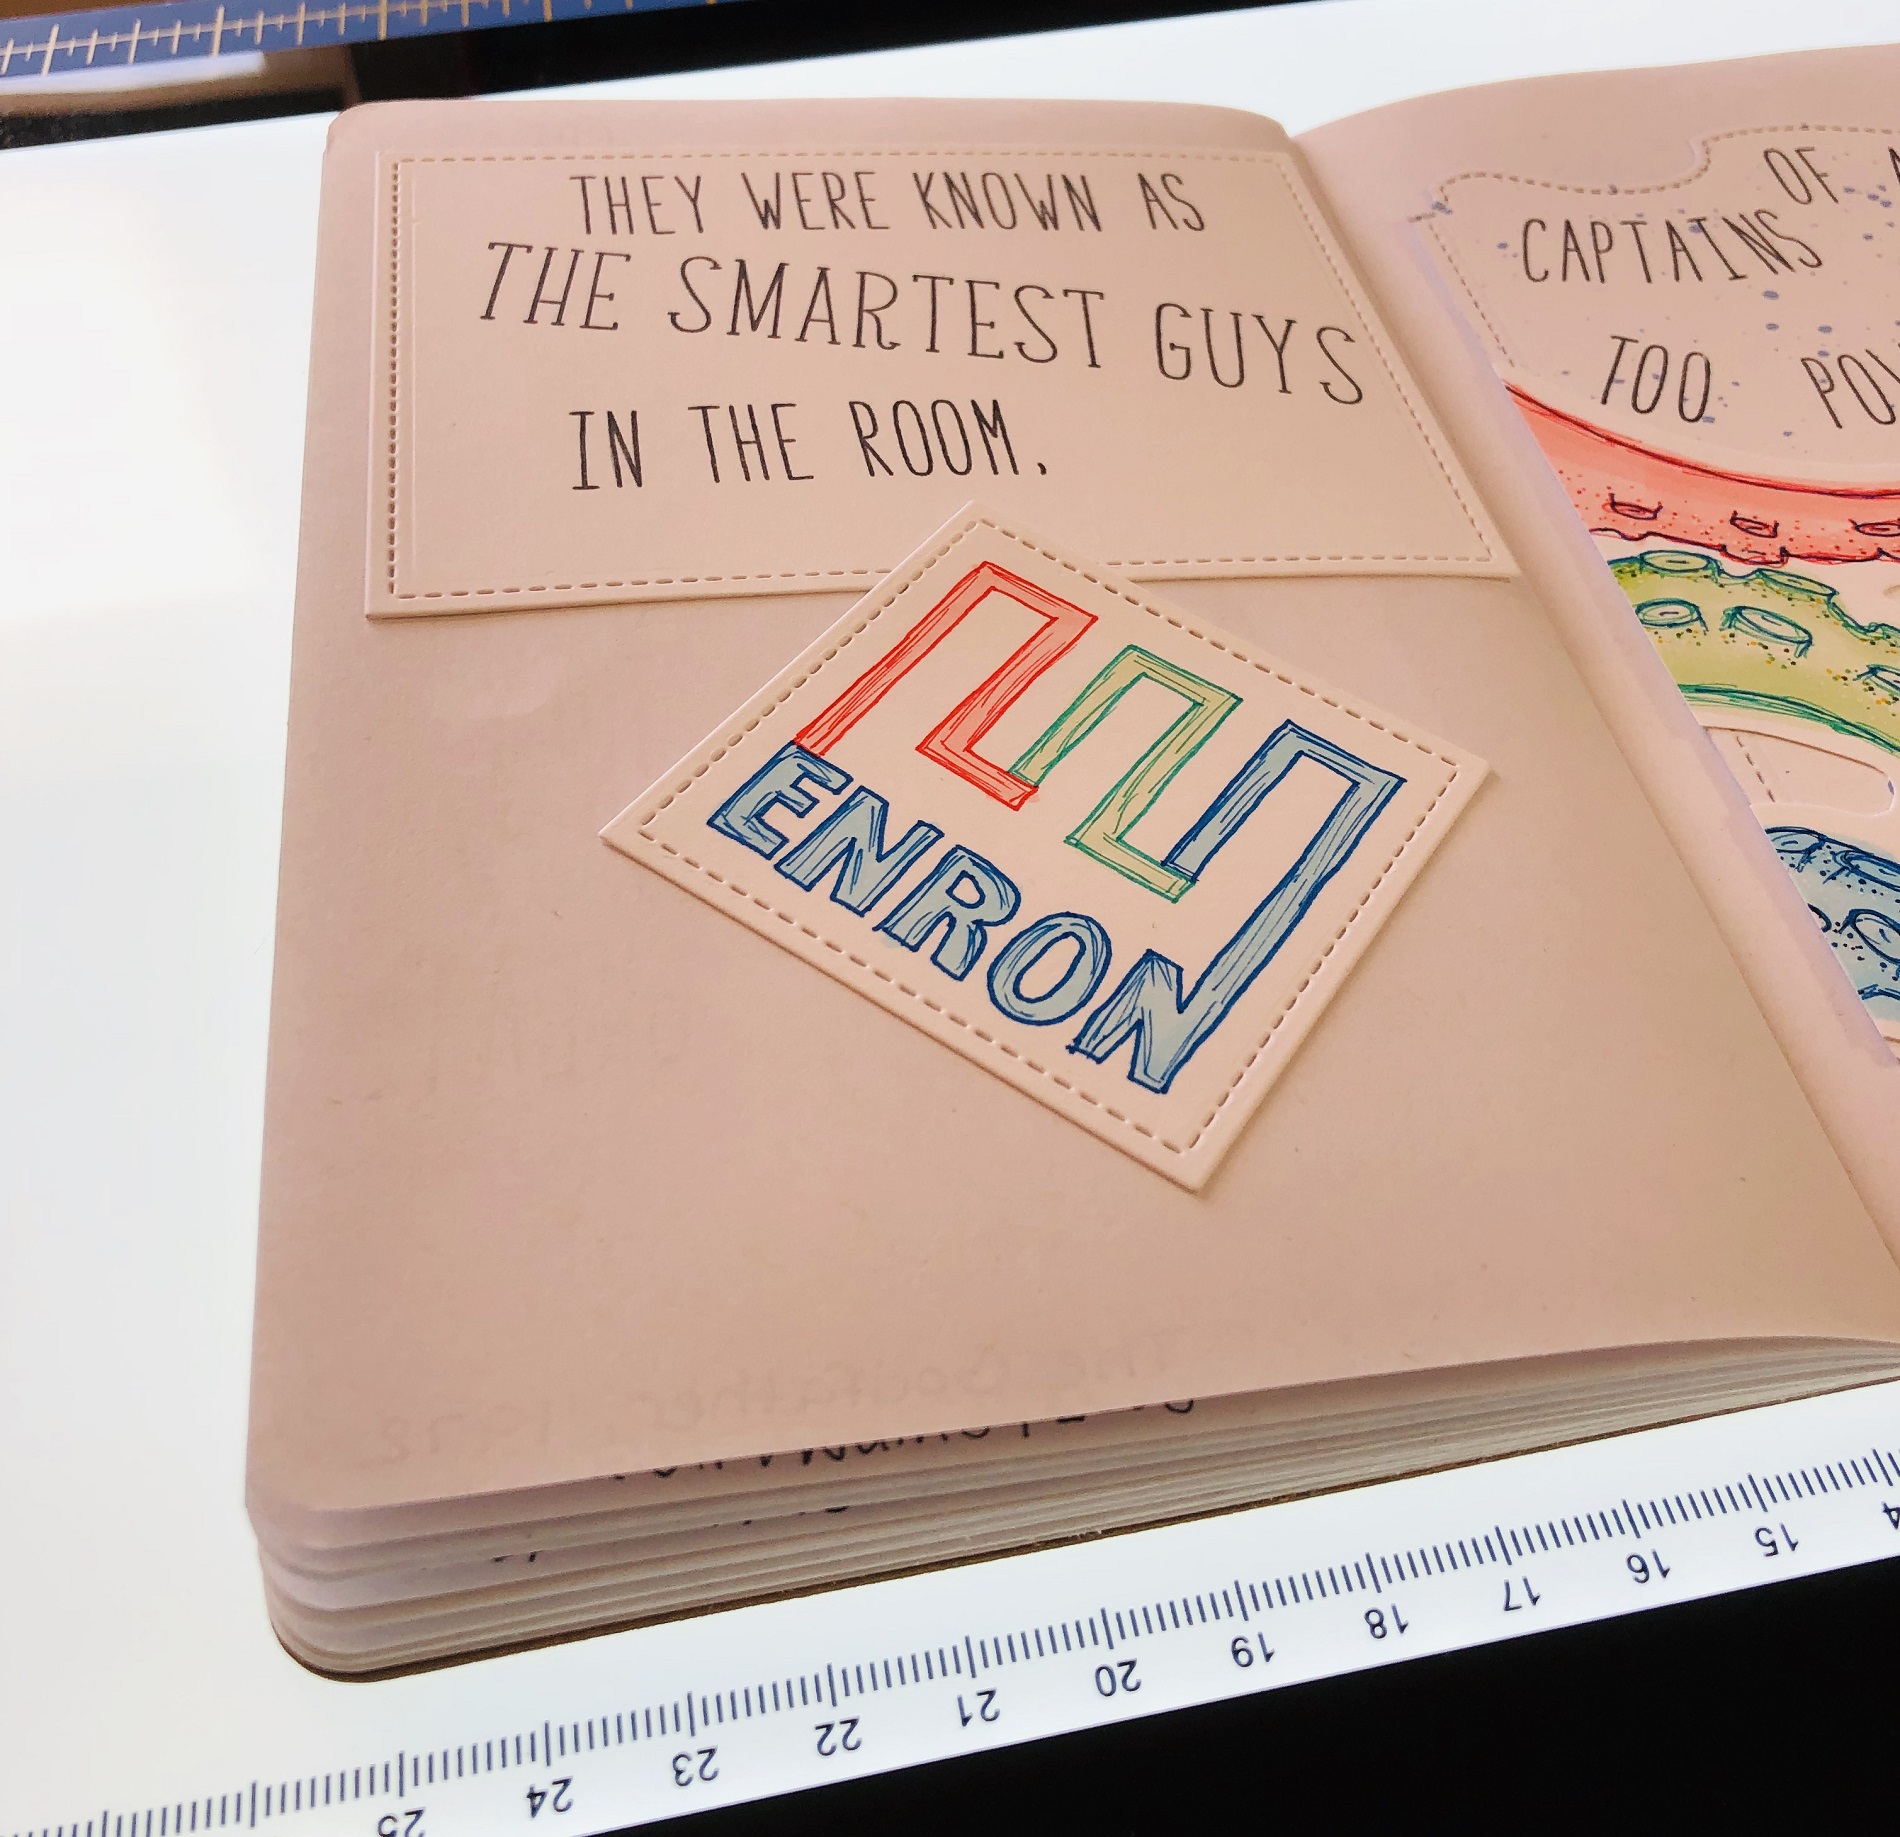 THEY WERE KNOWN AS
THE SMARTEST GUYS
IN THE ROOM.
ENRON
OF
CAPTAINS
TOO
The Godfather, 1972
25 24 23 22 21 20 19 18 17 16 15